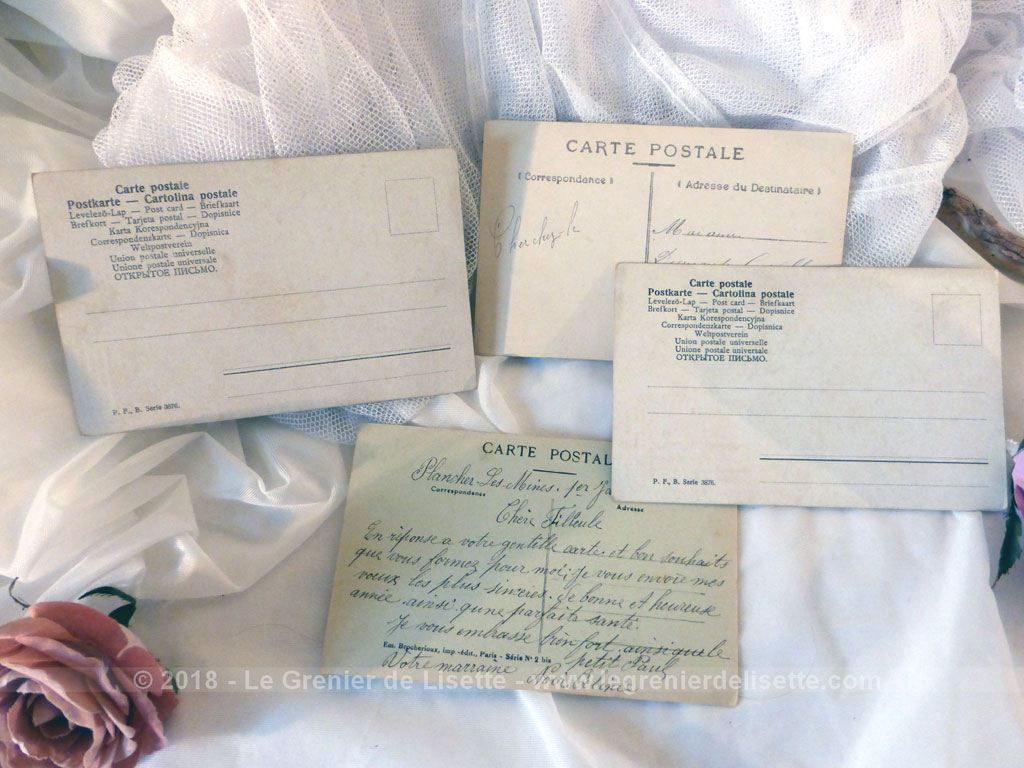 Carte postale
Postkarte — Cartolina postale
Levelező-Lap — Post card — Briefkaart
Brefkort — Tarjeta postal — Dopisnice
Karta Korespondencyjna
Correspondenzkarte — Dopisnica
Weltpostverein
Union postale universelle
Unione postale universale
ОТКРЫТОЕ ПИСЬМО.
P. F., B. Serie 3876.
CARTE POSTALE
( Correspondance )
( Adresse du Destinataire )
Cherchez le
Carte postale
Postkarte — Cartolina postale
Levelező-Lap — Post card — Briefkaart
Brefkort — Tarjeta postal — Dopisnice
Karta Korespondencyjna
Correspondenzkarte — Dopisnica
Weltpostverein
Union postale universelle
Unione postale universale
ОТКРЫТОЕ ПИСЬМО.
P. F., B. Serie 3876.
CARTE POSTAL
Plancher-Les-Mines. 1er Ja
Correspondance
Adresse
Chère Filleule
En réponse a votre gentille carte. et bon souhaits
que vous formez pour moi; Je vous envoie mes
vœux les plus sincères. de bonne et heureuse
année ainsi qu'une parfaite santé.
Je vous embrasse bien fort ainsi que le
petit Paul
Em. Bpecherioux, imp-édit., Paris - Série N° 2 bis
Votre marraine
© 2018 - Le Grenier de Lisette - www.legrenierdelisette.com